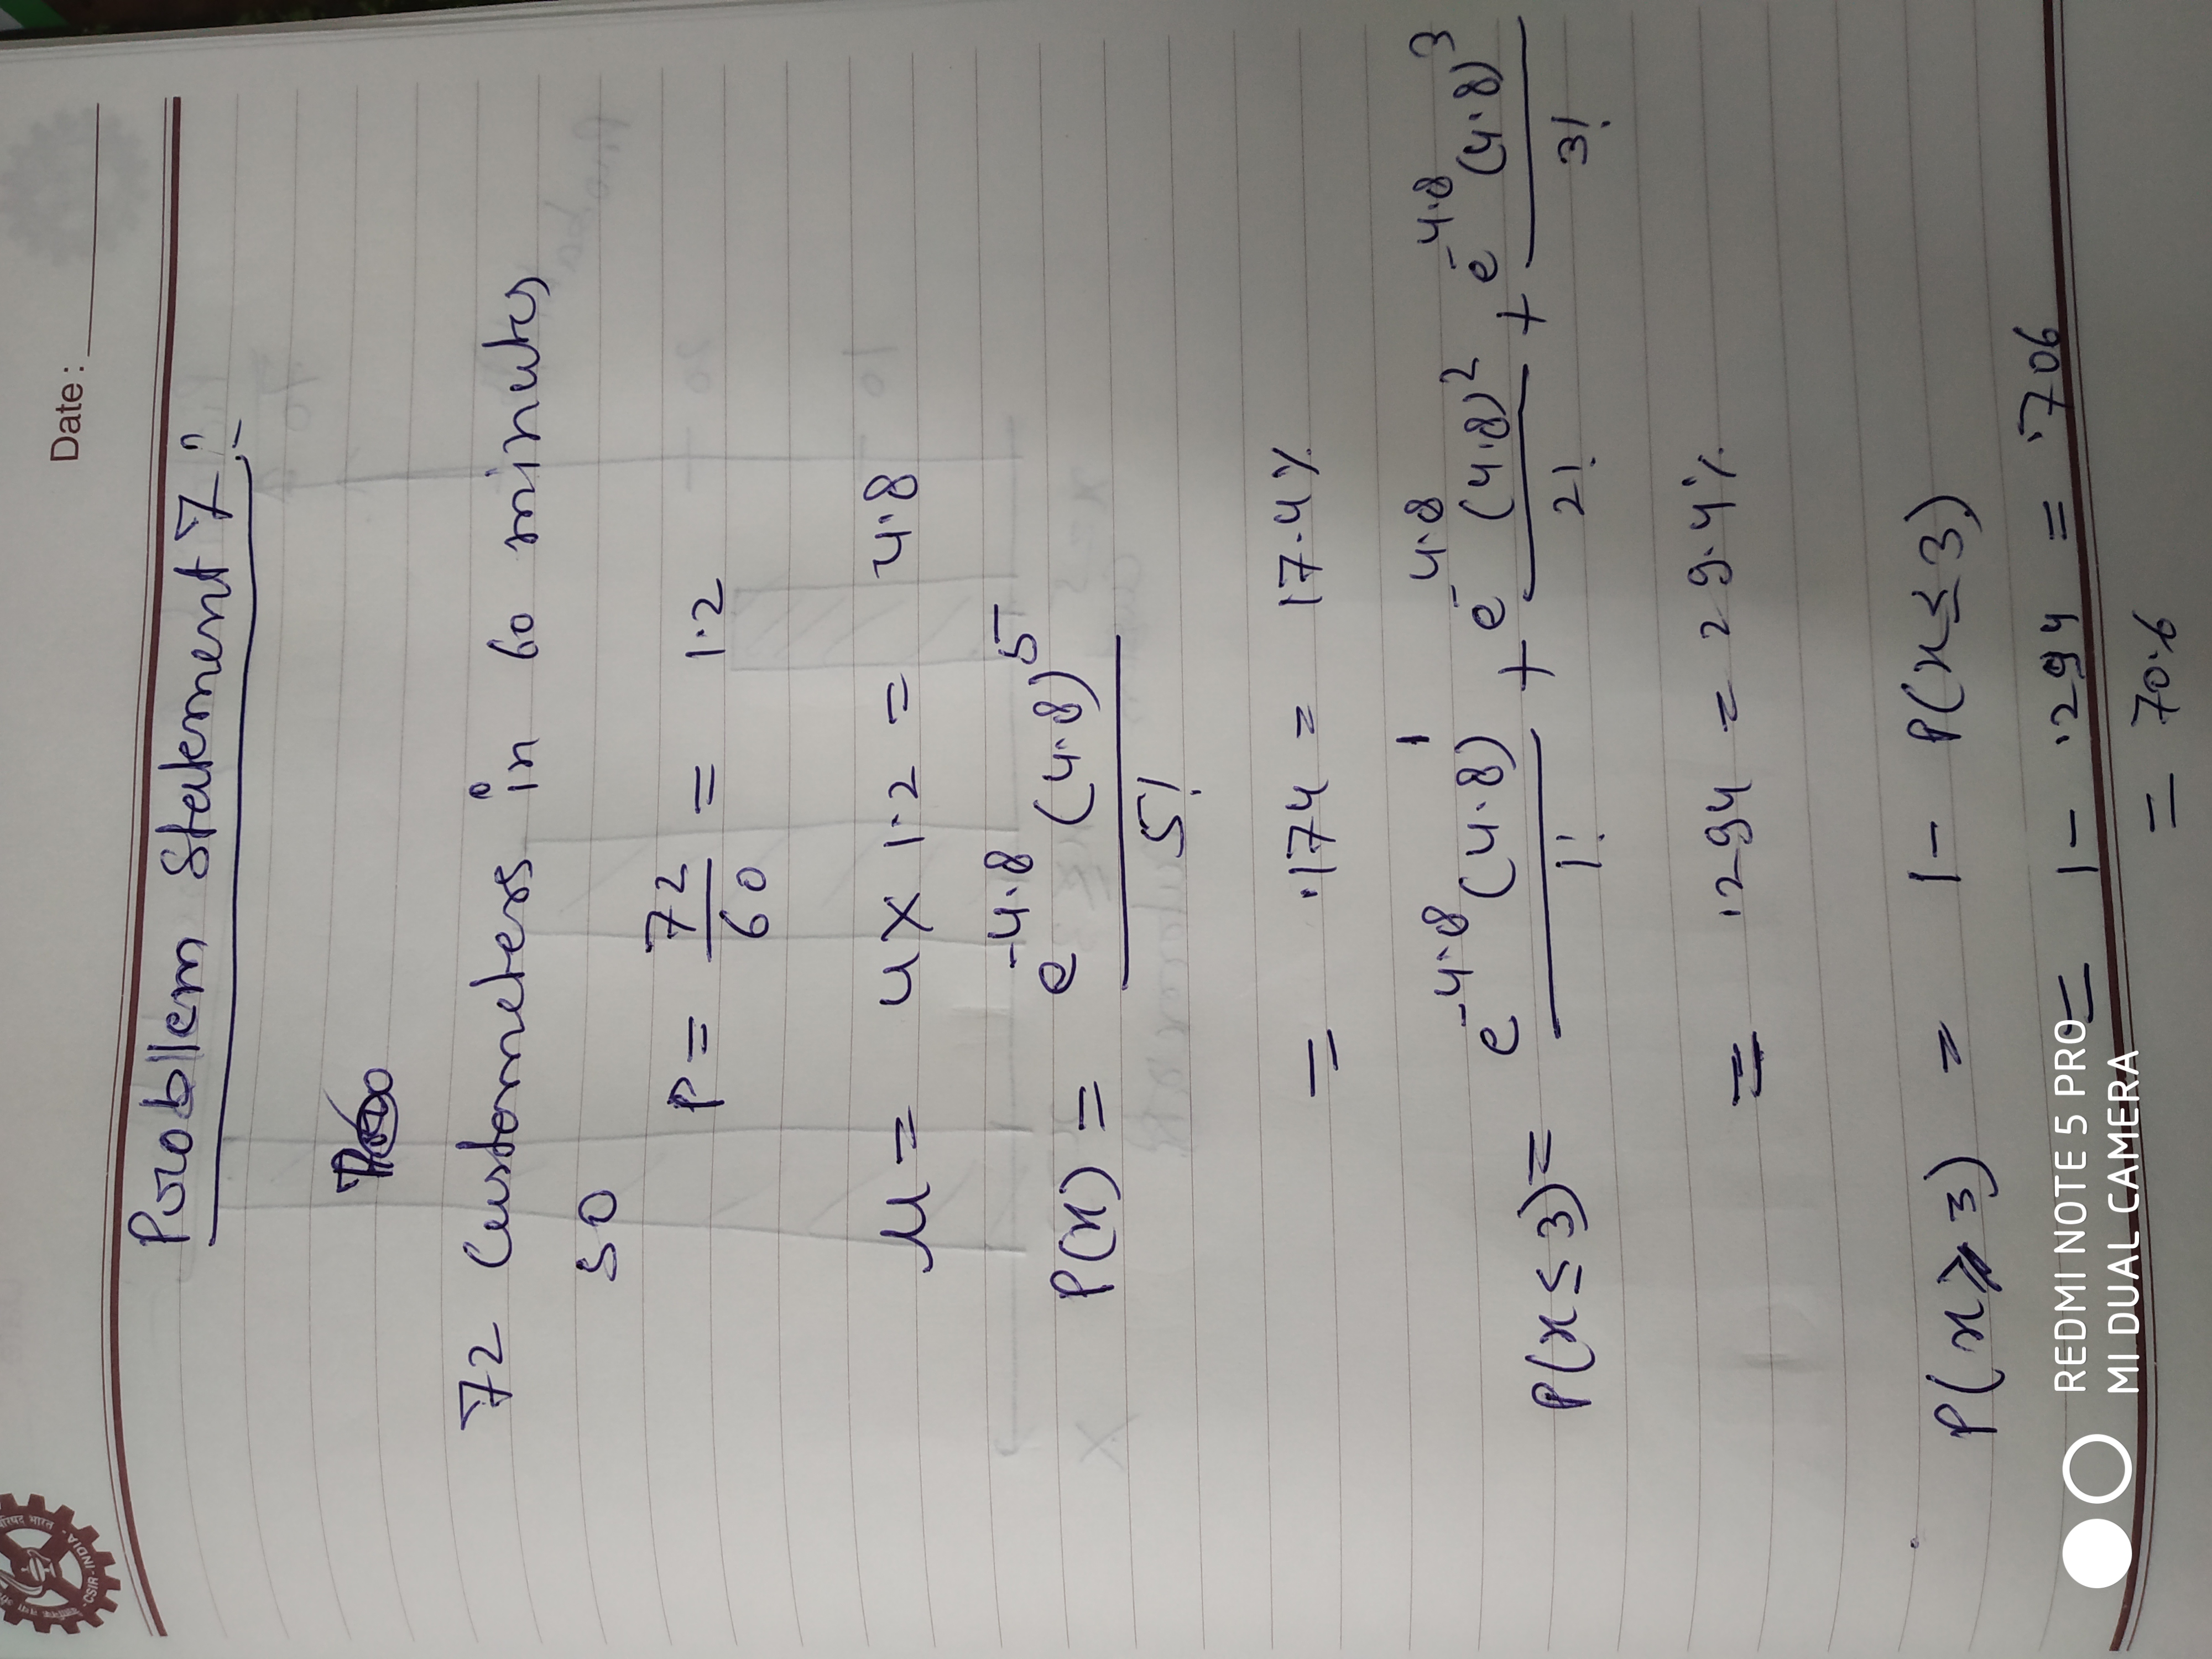 CSIR-INDIA
Date :
Problem Statement 7 :-
72 Custometers in 60 minutes
so
P = 72/60 = 1.2
μ = 4 × 1.2 = 4.8
P(x) = e^-4.8 (4.8)^5 / 5!
= .174 = 17.4%
P(x ≤ 3) = e^-4.8 (4.8)^1 / 1! + e^-4.8 (4.8)^2 / 2! + e^-4.8 (4.8)^3 / 3!
= .294 = 29.4%
P(x > 3) = 1 - P(x ≤ 3)
= 1 - .294 = .706
= 70.6
REDMI NOTE 5 PRO
MI DUAL CAMERA